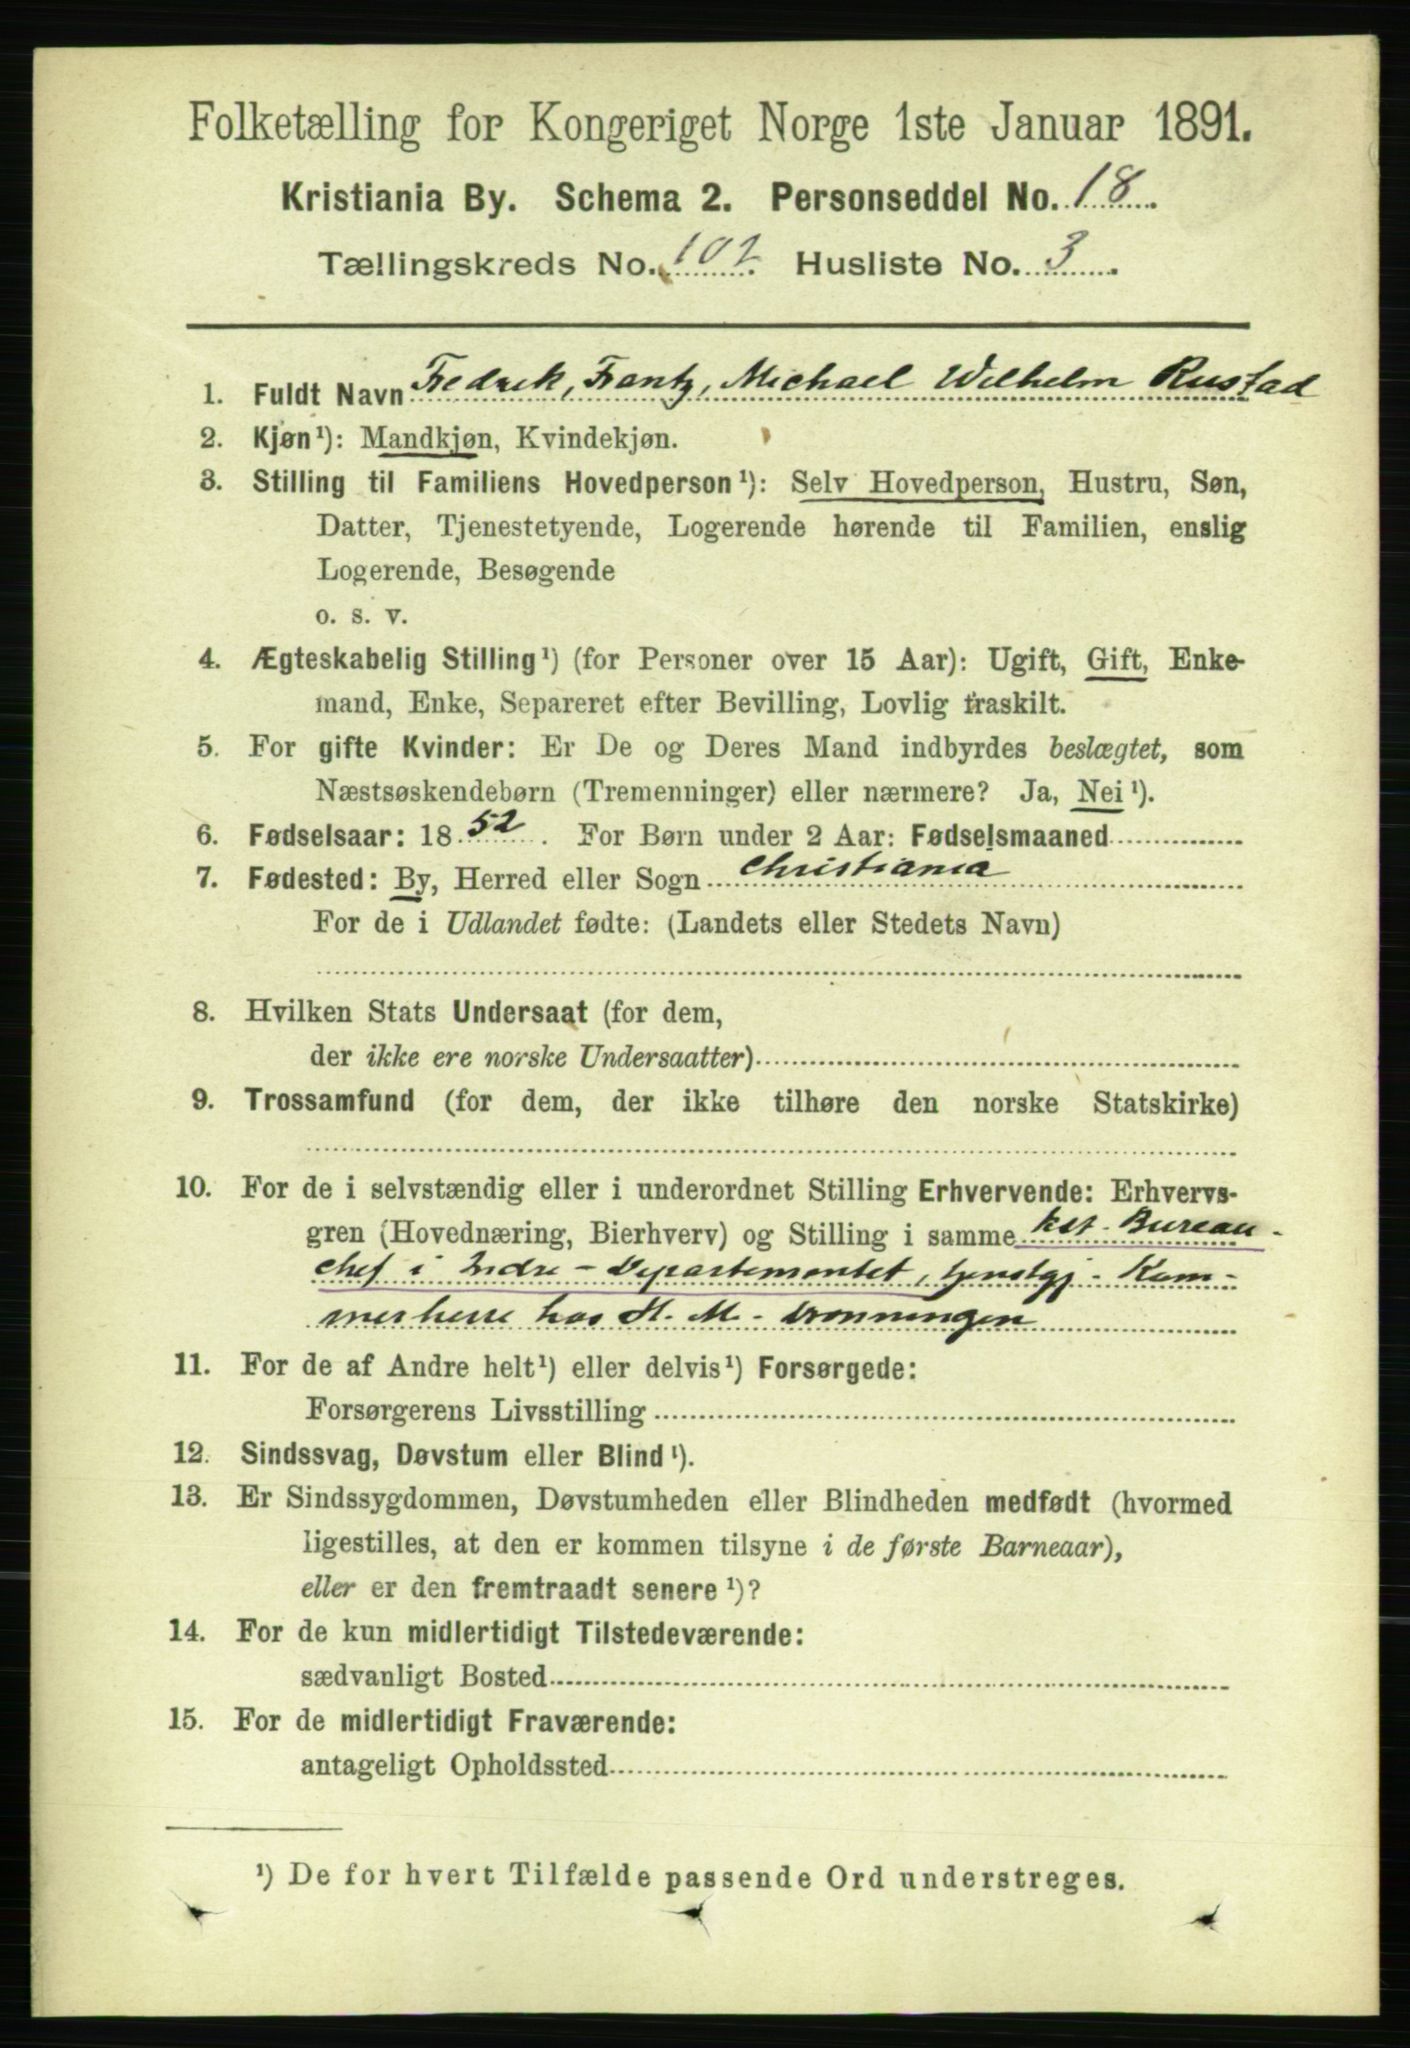 Folketælling for Kongeriget Norge 1ste Januar 1891.
Kristiania By. Schema 2. Personseddel No. 18.
Tællingskreds No. 102. Husliste No. 3.
1. Fuldt Navn Fredrik, Frantz, Michael Wilhelm Rustad
2. Kjøn¹): Mandkjøn, Kvindekjøn.
3. Stilling til Familiens Hovedperson¹): Selv Hovedperson, Hustru, Søn,
Datter, Tjenestetyende, Logerende hørende til Familien, enslig
Logerende, Besøgende
o. s. v.
4. Ægteskabelig Stilling¹) (for Personer over 15 Aar): Ugift, Gift, Enke-
mand, Enke, Separeret efter Bevilling, Lovlig fraskilt.
5. For gifte Kvinder: Er De og Deres Mand indbyrdes beslægtet, som
Næstsøskendebørn (Tremenninger) eller nærmere? Ja, Nei¹).
6. Fødselsaar: 1852. For Børn under 2 Aar: Fødselsmaaned
7. Fødested: By, Herred eller Sogn Christiania
For de i Udlandet fødte: (Landets eller Stedets Navn)
8. Hvilken Stats Undersaat (for dem,
der ikke ere norske Undersaatter)
9. Trossamfund (for dem, der ikke tilhøre den norske Statskirke)
10. For de i selvstændig eller i underordnet Stilling Erhvervende: Erhvervs-
gren (Hovednæring, Bierhverv) og Stilling i samme kst. Bureau-
chef i Indre-Departementet, tjenstgj. Kam-
merherre hos H. M. Dronningen
11. For de af Andre helt¹) eller delvis¹) Forsørgede:
Forsørgerens Livsstilling
12. Sindssvag, Døvstum eller Blind¹).
13. Er Sindssygdommen, Døvstumheden eller Blindheden medfødt (hvormed
ligestilles, at den er kommen tilsyne i de første Barneaar),
eller er den fremtraadt senere¹)?
14. For de kun midlertidigt Tilstedeværende:
sædvanligt Bosted
15. For de midlertidigt Fraværende:
antageligt Opholdssted
¹) De for hvert Tilfælde passende Ord understreges.